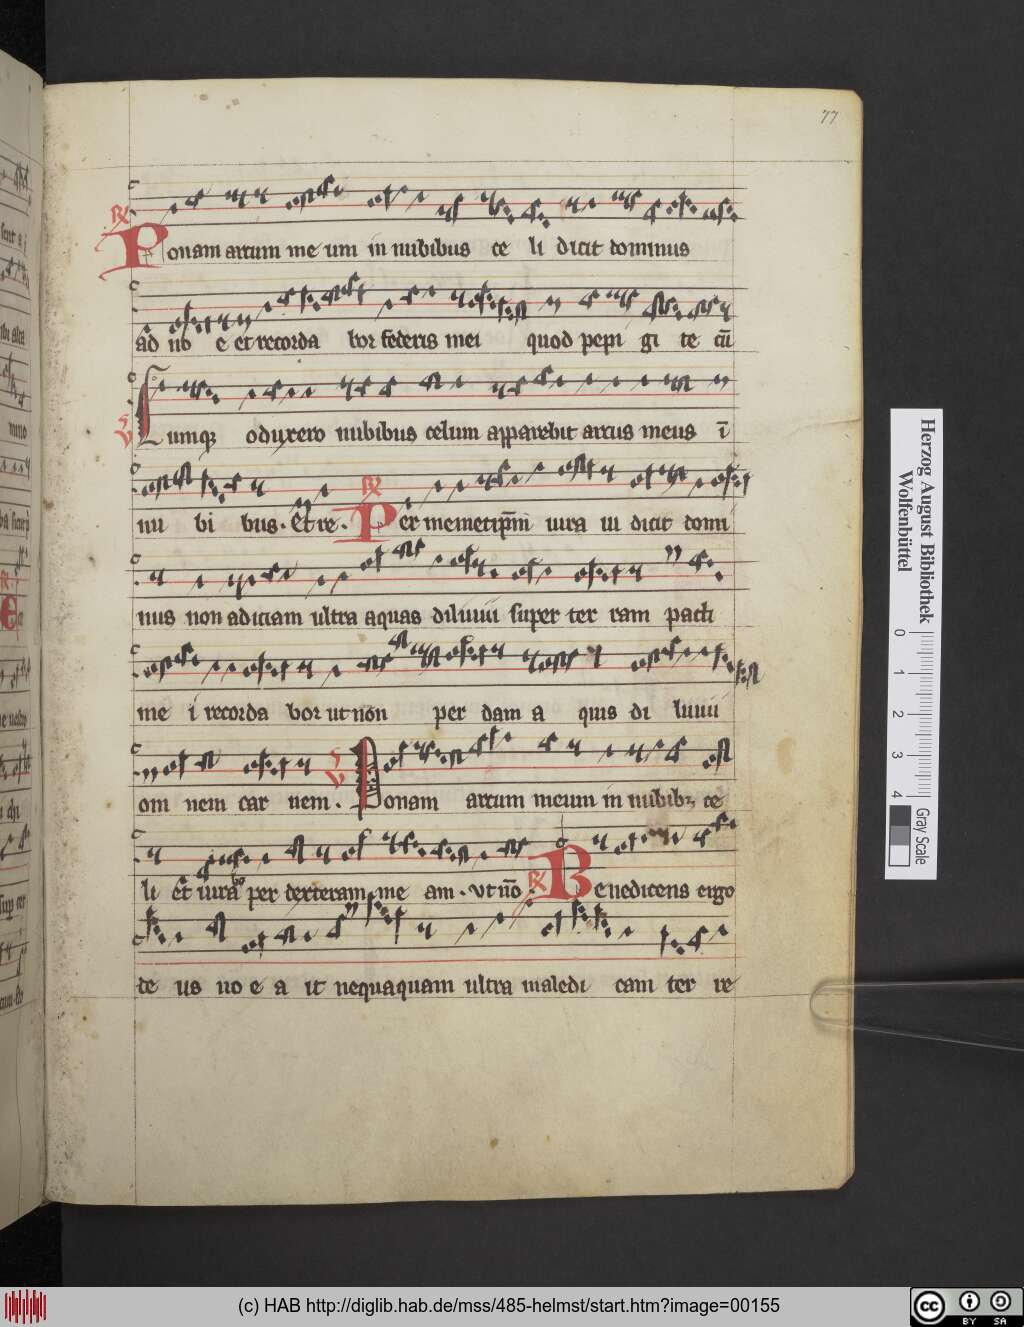 77
Ponam arcum me um in nubibus ce li dicit dominus
ad no e et recorda bor federis mei quod pepi gi te cū
Cumqꝫ oduxero nubibus celum apparebit arcus meus ī
nu bi bus. Et re. Per memetip̄m iura ui dicit domi
nus non adiciam ultra aquas diluuii super ter ram pacti
me i recorda bor ut nōn per dam a quis di luuii
om nem car nem. Ponam arcum meum in nubibꝫ ce
li et iurabo per dexteram me am. vt nō Benedicens ergo
de us no e a it nequaquam ultra maledi cam ter re
Herzog August Bibliothek
Wolfenbüttel
0 1 2 3 4
Gray Scale
(c) HAB http://diglib.hab.de/mss/485-helmst/start.htm?image=00155
cc BY SA